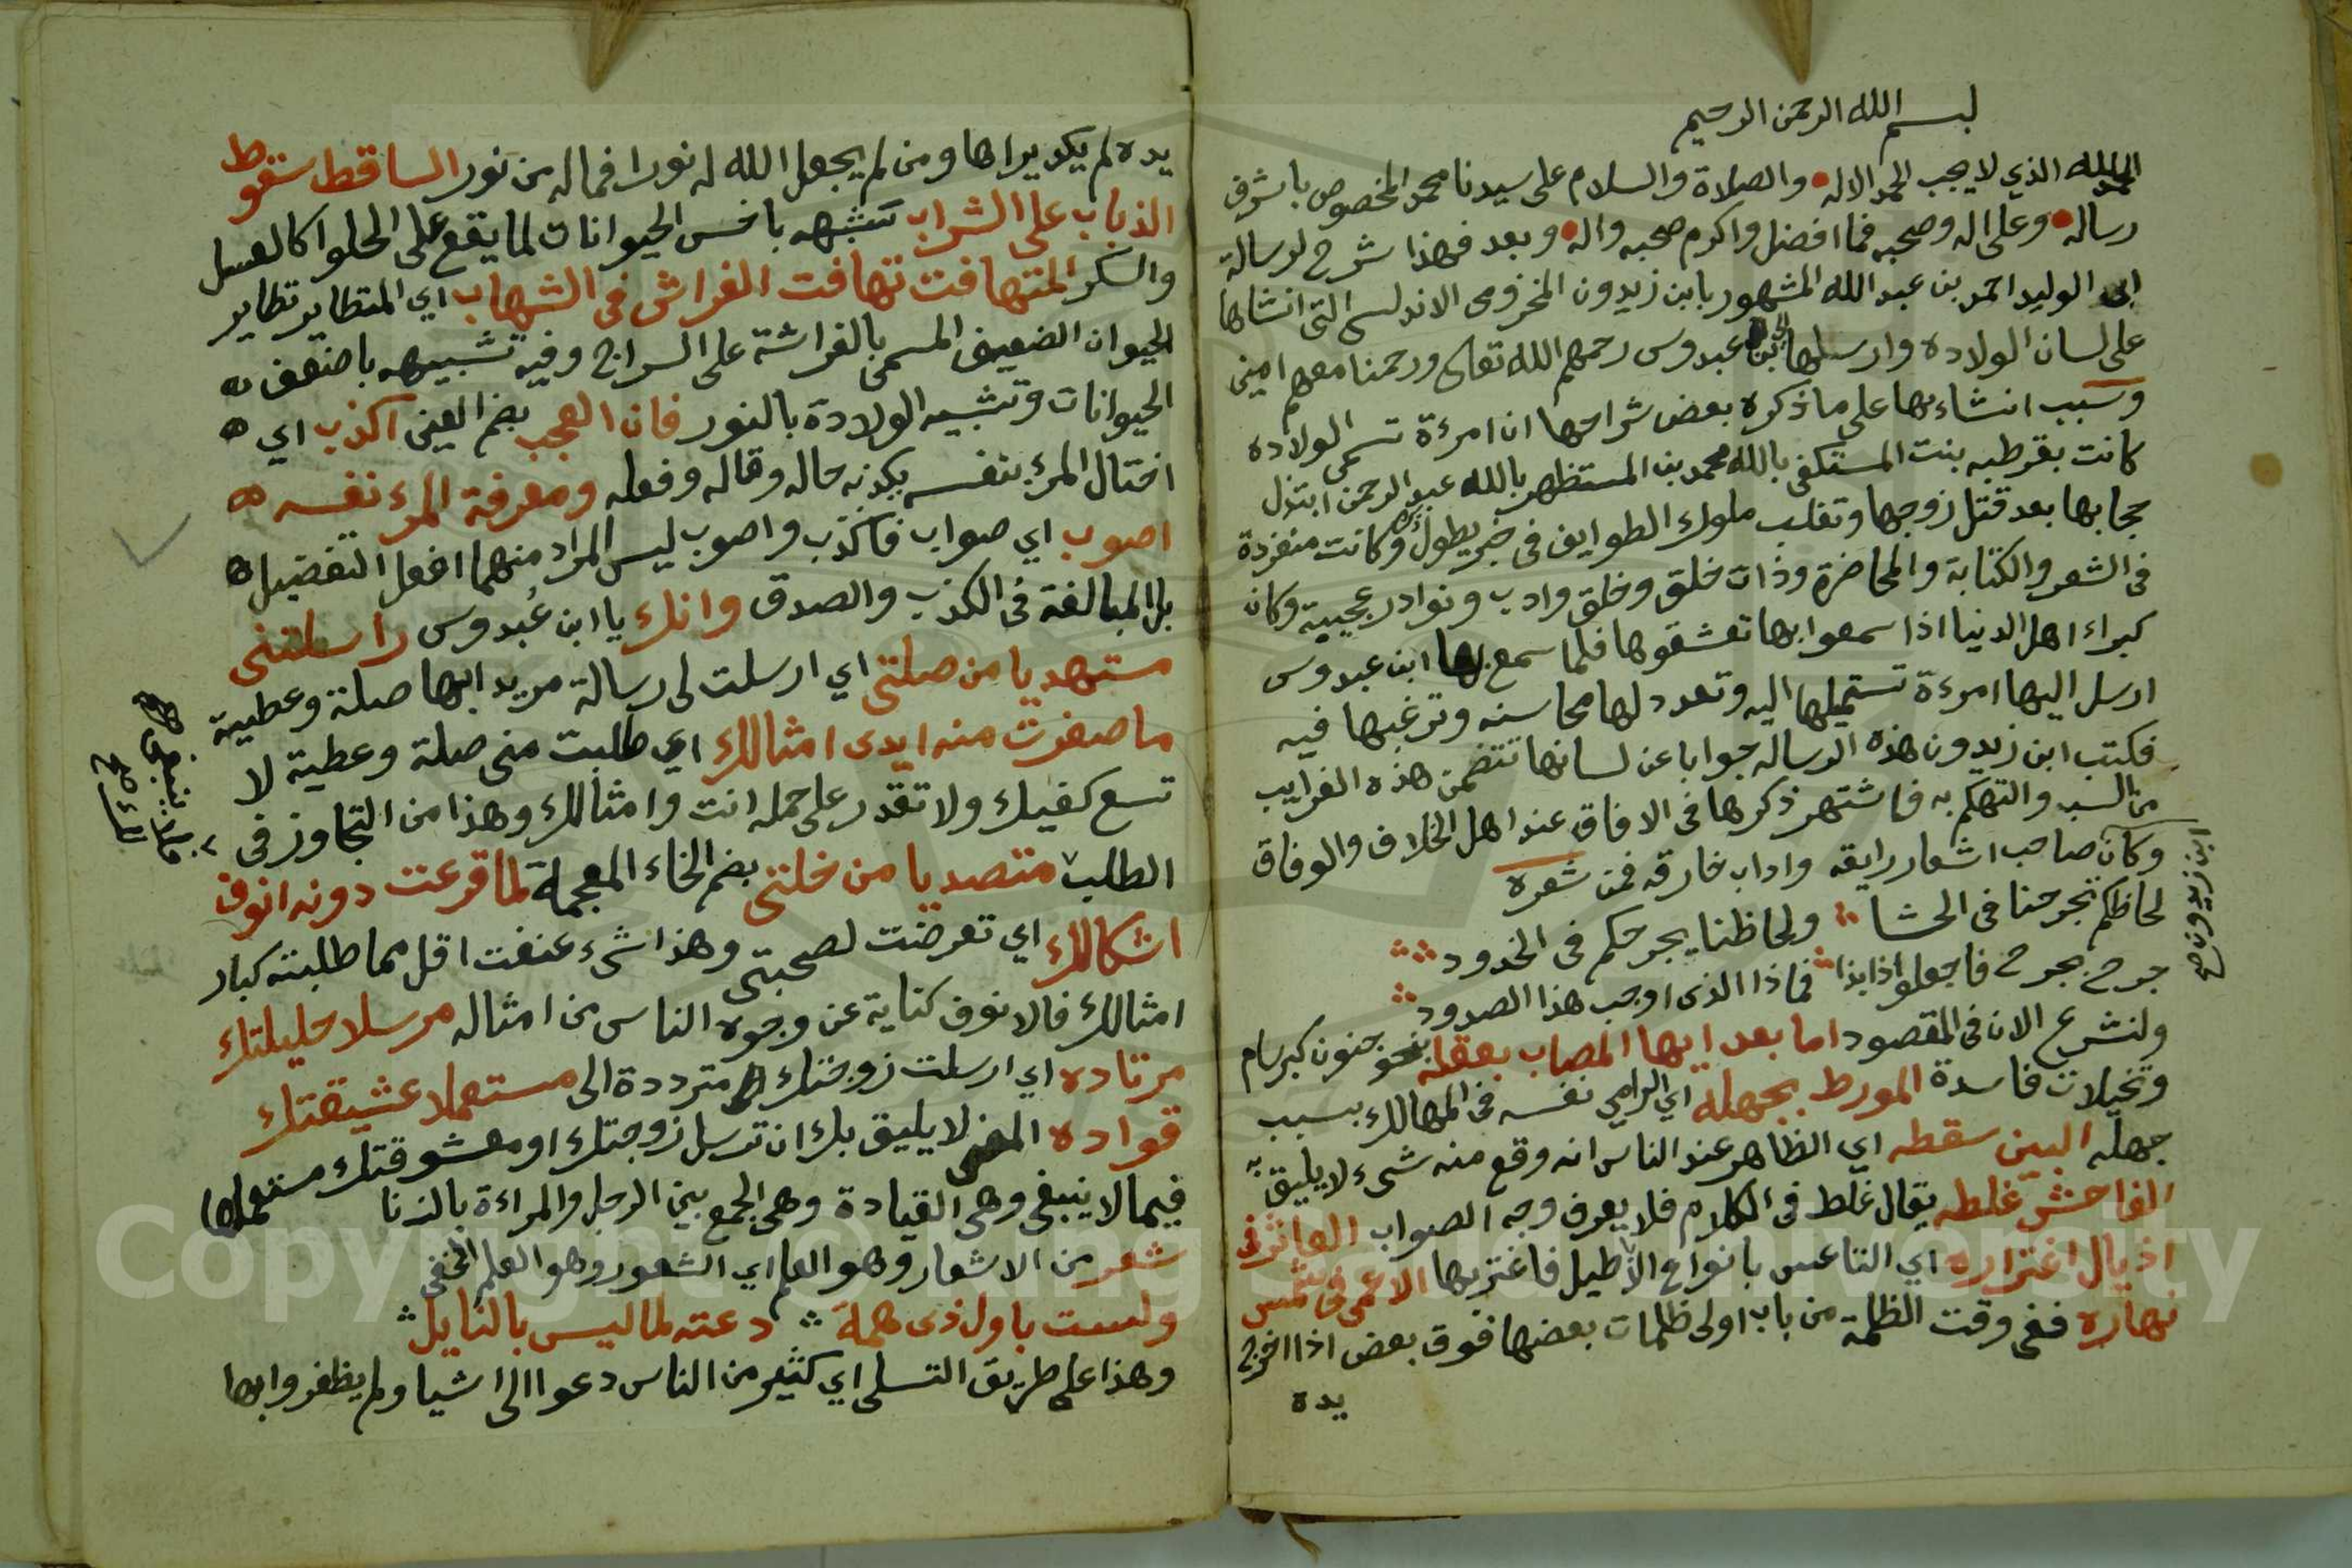 بسم الله الرحمن الرحيم
الحمد لله الذي لا يجب الحمد الا له والصلاة والسلام على سيدنا محمد المخصوص باشرف
رساله وعلى اله وصحبه فما افضل واكرم صحبه واله وبعد فهذا شرح لرسالة
ابى الوليد احمد بن عبد الله المشهور بابن زيدون المخزومى الاندلسى التى انشاها
على لسان الولاده وارسلها الى ابن عبدوس رحمهم الله تعالى ورحمنا معهم امين
وسبب انشاءها على ما ذكره بعض شراحها ان امرءة تسمى الولاده
كانت بقرطبه بنت المستكفى بالله محمد بن المستظهر بالله عبد الرحمن ابتذل
حجابها بعد قتل زوجها وتغلب ملوك الطوايف فى خبر يطول ذكره وكانت منفردة
فى الشعر والكتابة والمحاضرة وذات خلق وخلق وادب ونوادر عجيبة وكان
كبراء اهل الدنيا اذا سمعوا بها تعشقوها فلما سمع بها ابن عبدوس
ارسل اليها امرءة تستميلها اليه وتعدد لها محاسنه وترغبها فيه
فكتب ابن زيدون هذه الرساله جوابا عن لسانها تتضمن هذه الغرايب
من السب والتهكم به فاشتهر ذكرها فى الافاق عند اهل الخلاف والوفاق
وكان صاحب اشعار رايقه واداب خارقه فمن شعره
ابن زيدون صح
لحاظكم تجرحنا فى الحشا ولحاظنا يجرحكم فى الخدود
جرح بجرح فاجعلوا ذا بذا فماذا الذى اوجب هذا الصدود
ولنشرع الان فى المقصود اما بعد ايها المصاب بعقله بنحو جنون كبرسام
وتخيلات فاسدة المورط بجهله اي الرامي نفسه فى المهالك بسبب
جهله البين سقطه اي الظاهر عند الناس انه وقع منه شىء لا يليق به
الفاحش غلطه يقال غلط فى الكلام فلا يعرف وجه الصواب العاثر فى
اذيال اغتراره اي التاعس بانواع الاباطيل فاغتر بها الاعمى فى شمس
نهاره ففى وقت الظلمة من باب اولى ظلمات بعضها فوق بعض اذا اخرج
يده
يده لم يكد يراها ومن لم يجعل الله له نورا فما له من نور الساقط سقوط
الذباب على الشراب تشبهه باخس الحيوانات لما يقع على الحلوا كالعسل
والسكر المتهافت تهافت الفراش فى الشهاب اي المتطاير تطاير
الحيوان الضعيف المسمى بالفراشة على السراج وفيه تشبيهه باضعف
الحيوانات وتشبيه الولادة بالنور فان العجب بضم العين اكذب اي
اختال المرء بنفسه يكذبه حاله وقاله وفعله ومعرفة المرء نفسه
اصوب اي صواب فاكذب واصوب ليس المراد منهما افعل التفضيل
بل المبالغة فى الكذب والصدق وانك يا ابن عُبدوس راسلتنى
مستهديا من صلتى اي ارسلت لى رسالة مريد ابها صلة وعطية
ما صفرت منه ايدى امثالك اي طلبت منى صلة وعطية لا
تسع كفيك ولا تقدر على حمله انت وامثالك وهذا من التجاوز فى
الطلب متصديا من خلتى بضم الخاء المعجمة لما قرعت دونه انوف
اشكالك اي تعرضت لصحبتى وهذا شىء عنفت اقل مما طلبته كبار
امثالك فالانوف كناية عن وجوه الناس من امثاله مرسلا خليلتك
مرتاده اي ارسلت زوجتك مترددة الى مستعملا عشيقتك
قواده المعنى لا يليق بك ان ترسل زوجتك او معشوقتك مستعملها
فيما لا ينبغى وهى القيادة وهى الجمع بين الرجل والمراءة بالزنا
شعر من الاشعار وهو العلم اي الشعور وهو العلم الخفى
ولست باول ذى همة دعته لما ليس بالنايل
وهذا على طريق التسلى اي كثير من الناس دعوا الى اشيا ولم يظفروا بها
Copyright © King Saud University